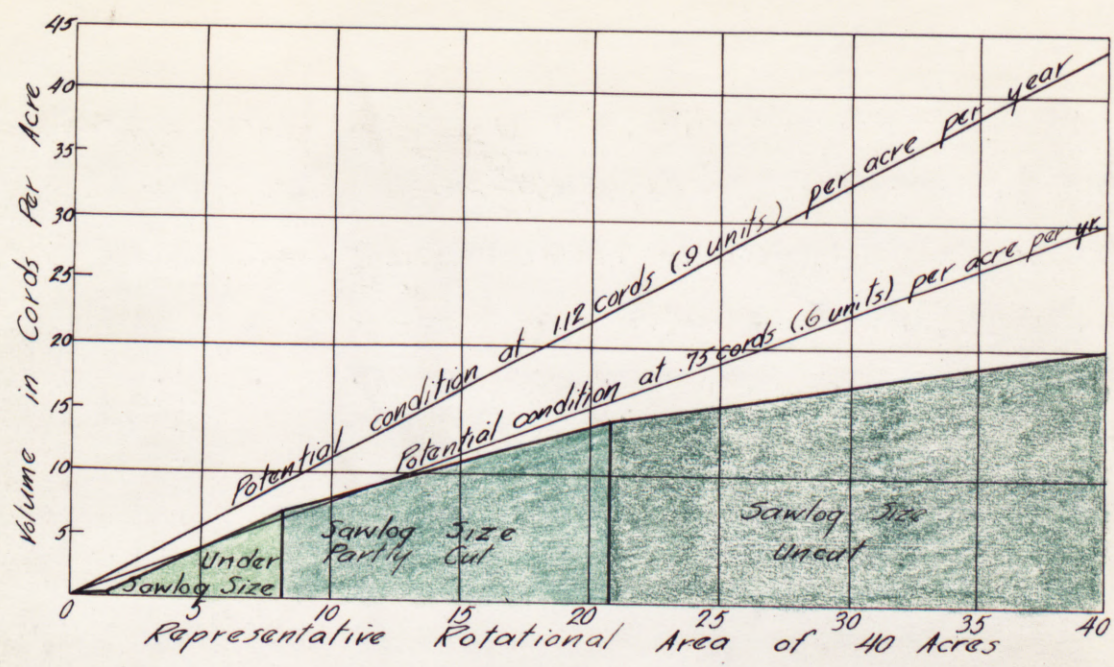 45
40
35
30
25
20
15
10
5
0
Volume in Cords Per Acre
Potential condition at 1.12 cords (.9 units) per acre per year
Potential condition at .75 cords (.6 units) per acre per yr.
Under
Sawlog Size
Sawlog Size
Partly Cut
Sawlog Size
Uncut
5 10 15 20 25 30 35 40
Representative Rotational Area of 40 Acres